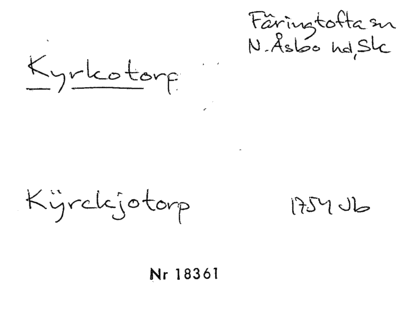 Färingtofta sn
N. Åsbo hd, Sk
Kyrkotorp
Kÿrckjotorp 1754 Jb
Nr 18361